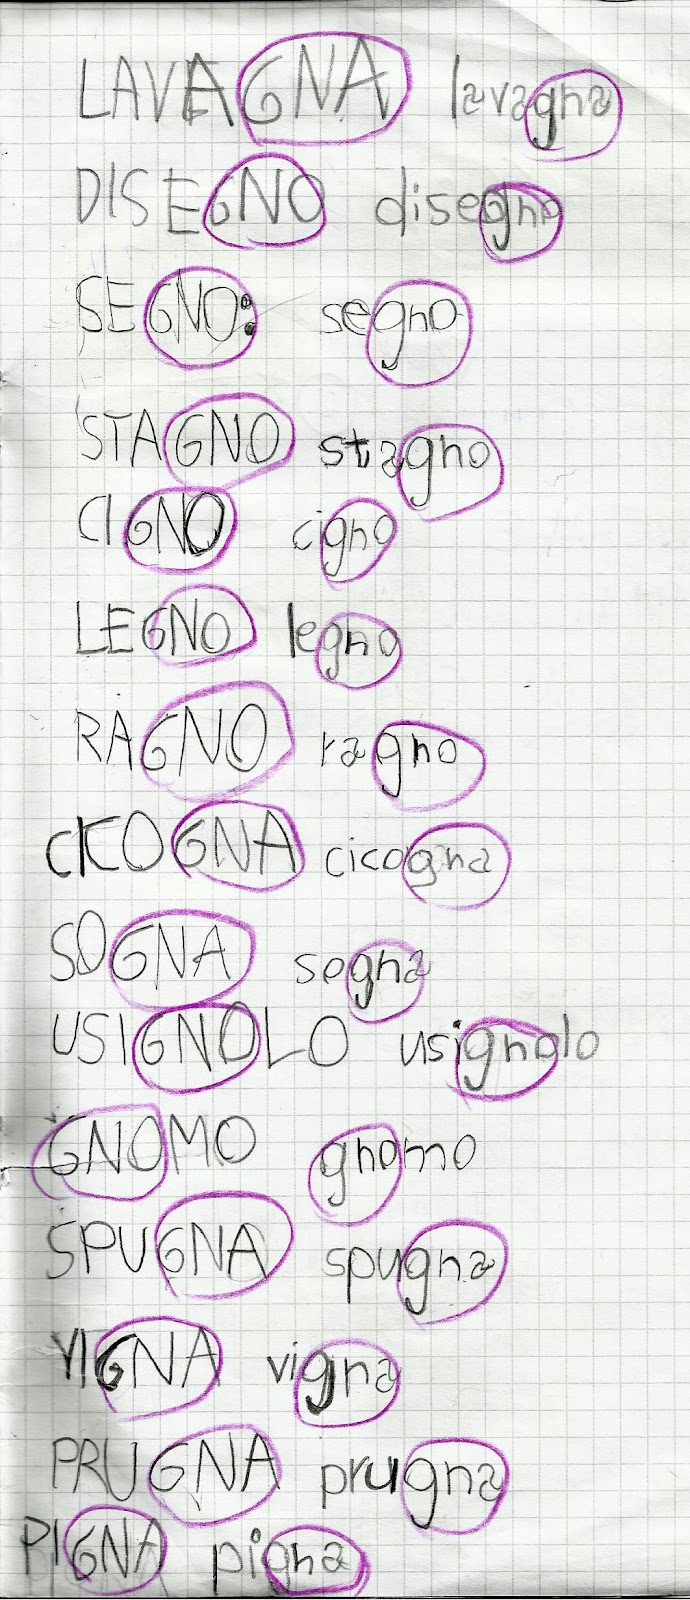 LAVAGNA lavagna
DISEGNO disegno
SEGNO: segno
STAGNO stagno
CIGNO cigno
LEGNO legno
RAGNO ragno
CICOGNA cicogna
SOGNA sogna
USIGNOLO usignolo
GNOMO gnomo
SPUGNA spugna
VIGNA vigna
PRUGNA prugna
PIGNA pigna